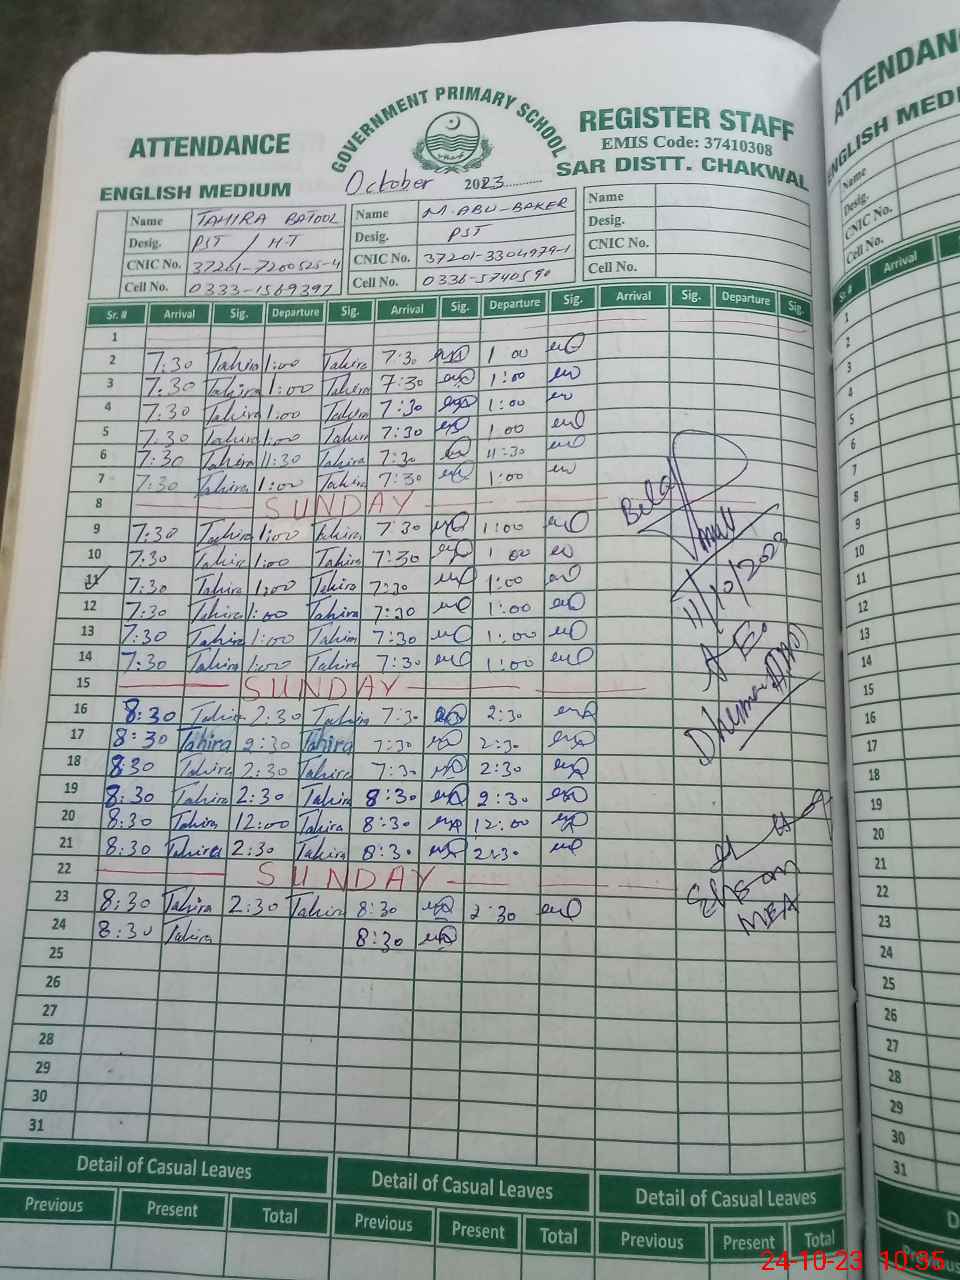 ATTENDANCE
GOVERNMENT PRIMARY SCHOOL
REGISTER STAFF
EMIS Code: 37410308
ENGLISH MEDIUM
October 2023
SAR DISTT. CHAKWAL
Name TAHIRA BATOOL Name M. ABU-BAKER Name
Desig. PST / H.T Desig. PST Desig.
CNIC No. 37201-7200525-4 CNIC No. 37201-3304979-1 CNIC No.
Cell No. 0333-1569397 Cell No. 0336-5740590 Cell No.
Sr. # Arrival Sig. Departure Sig. Arrival Sig. Departure Sig. Arrival Sig. Departure Sig.
1
2 7:30 Tahira 1:00 Tahira 7:30 1 00
3 7:30 Tahira 1:00 Tahira 7:30 1:00
4 7:30 Tahira 1:00 Tahira 7:30 1:00
5 7:30 Tahira 1:00 Tahira 7:30 1 00
6 7:30 Tahira 11:30 Tahira 7:30 11:30
7 7:30 Tahira 1:00 Tahira 7:30 1:00
8 SUNDAY
9 7:30 Tahira 1:00 Tahira 7:30 1:00
10 7:30 Tahira 1:00 Tahira 7:30 1 00
11 7:30 Tahira 1:00 Tahira 7:30 1:00
12 7:30 Tahira 1:00 Tahira 7:30 1:00
13 7:30 Tahira 1:00 Tahira 7:30 1:00
14 7:30 Tahira 1:00 Tahira 7:30 1:00
15 SUNDAY
16 8:30 Tahira 2:30 Tahira 7:30 2:30
17 8:30 Tahira 2:30 Tahira 7:30 2:30
18 8:30 Tahira 2:30 Tahira 7:30 2:30
19 8:30 Tahira 2:30 Tahira 8:30 2:30
20 8:30 Tahira 12:00 Tahira 8:30 12:00
21 8:30 Tahira 2:30 Tahira 8:30 2:30
22 SUNDAY
23 8:30 Tahira 2:30 Tahira 8:30 2:30
24 8:30 Tahira 8:30
25
26
27
28
29
30
31
11/10/2023
MEA
Detail of Casual Leaves Detail of Casual Leaves Detail of Casual Leaves
Previous Present Total Previous Present Total Previous Present Total
ATTENDAN
ENGLISH MEDIU
Name
Desig.
CNIC No.
Cell No.
Sr # Arrival
1
2
3
4
5
6
7
8
9
10
11
12
13
14
15
16
17
18
19
20
21
22
23
24
25
26
27
28
29
30
31
24-10-23 10:35